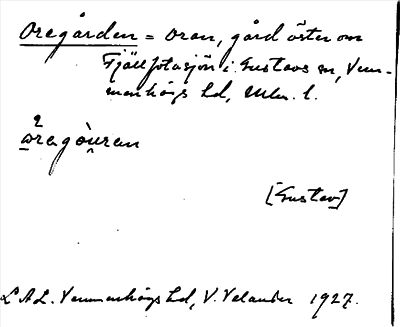 Oregården = Oran, gård öster om
Fjällfotasjön i Gustavs sn, Vem-
menhögs hd, Mlm. l.
[Gustav]
L.A.L. Vemmenhögs hd, V. Velander 1927.